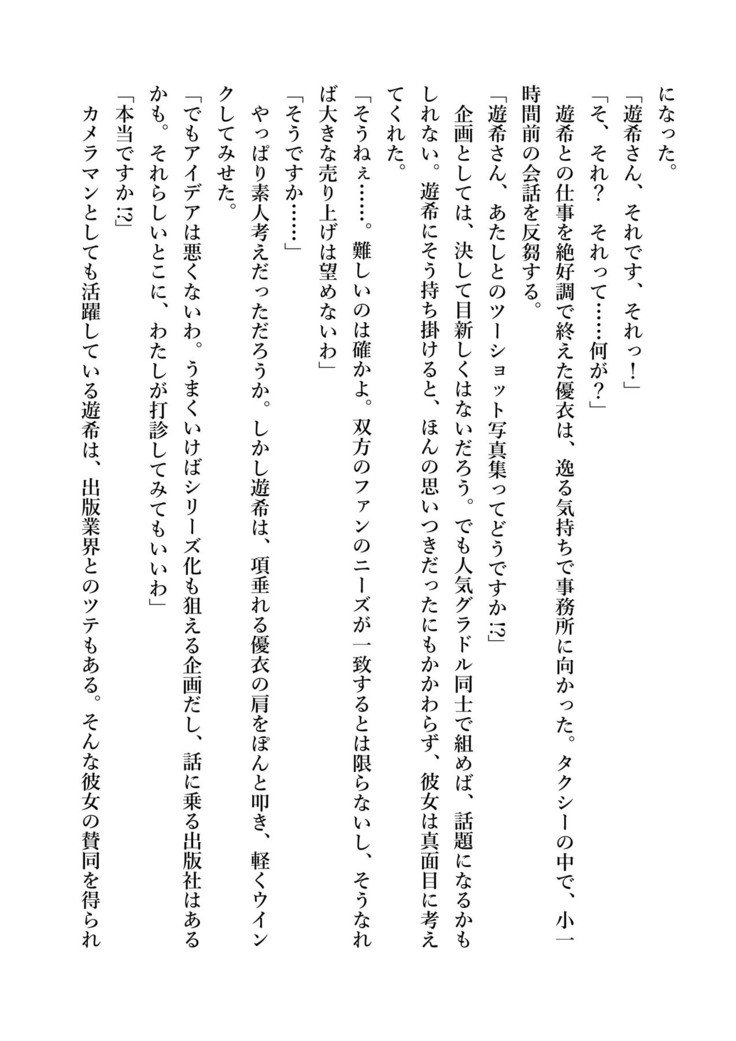 になった。
「遊希さん、それです、それっ！」
「そ、それ？　それって……何が？」
　遊希との仕事を絶好調で終えた優衣は、逸る気持ちで事務所に向かった。タクシーの中で、小一
時間前の会話を反芻する。
「遊希さん、あたしとのツーショット写真集ってどうですか!?」
　企画としては、決して目新しくはないだろう。でも人気グラドル同士で組めば、話題になるかも
しれない。遊希にそう持ち掛けると、ほんの思いつきだったにもかかわらず、彼女は真面目に考え
てくれた。
「そうねぇ……。難しいのは確かよ。双方のファンのニーズが一致するとは限らないし、そうなれ
ば大きな売り上げは望めないわ」
「そうですか……」
　やっぱり素人考えだっただろうか。しかし遊希は、項垂れる優衣の肩をぽんと叩き、軽くウイン
クしてみせた。
「でもアイデアは悪くないわ。うまくいけばシリーズ化も狙える企画だし、話に乗る出版社はある
かも。それらしいとこに、わたしが打診してみてもいいわ」
「本当ですか!?」
　カメラマンとしても活躍している遊希は、出版業界とのツテもある。そんな彼女の賛同を得られ